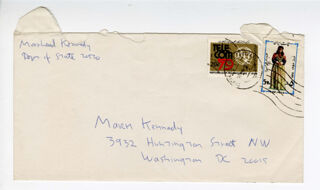 Marshall Kennedy
Dept of State 20520
TELE
COM
75
Mark Kennedy
3932 Huntington Street NW
Washington DC 20015